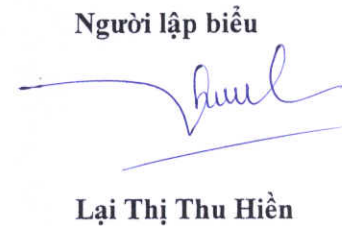 Người lập biểu
Lại Thị Thu Hiền